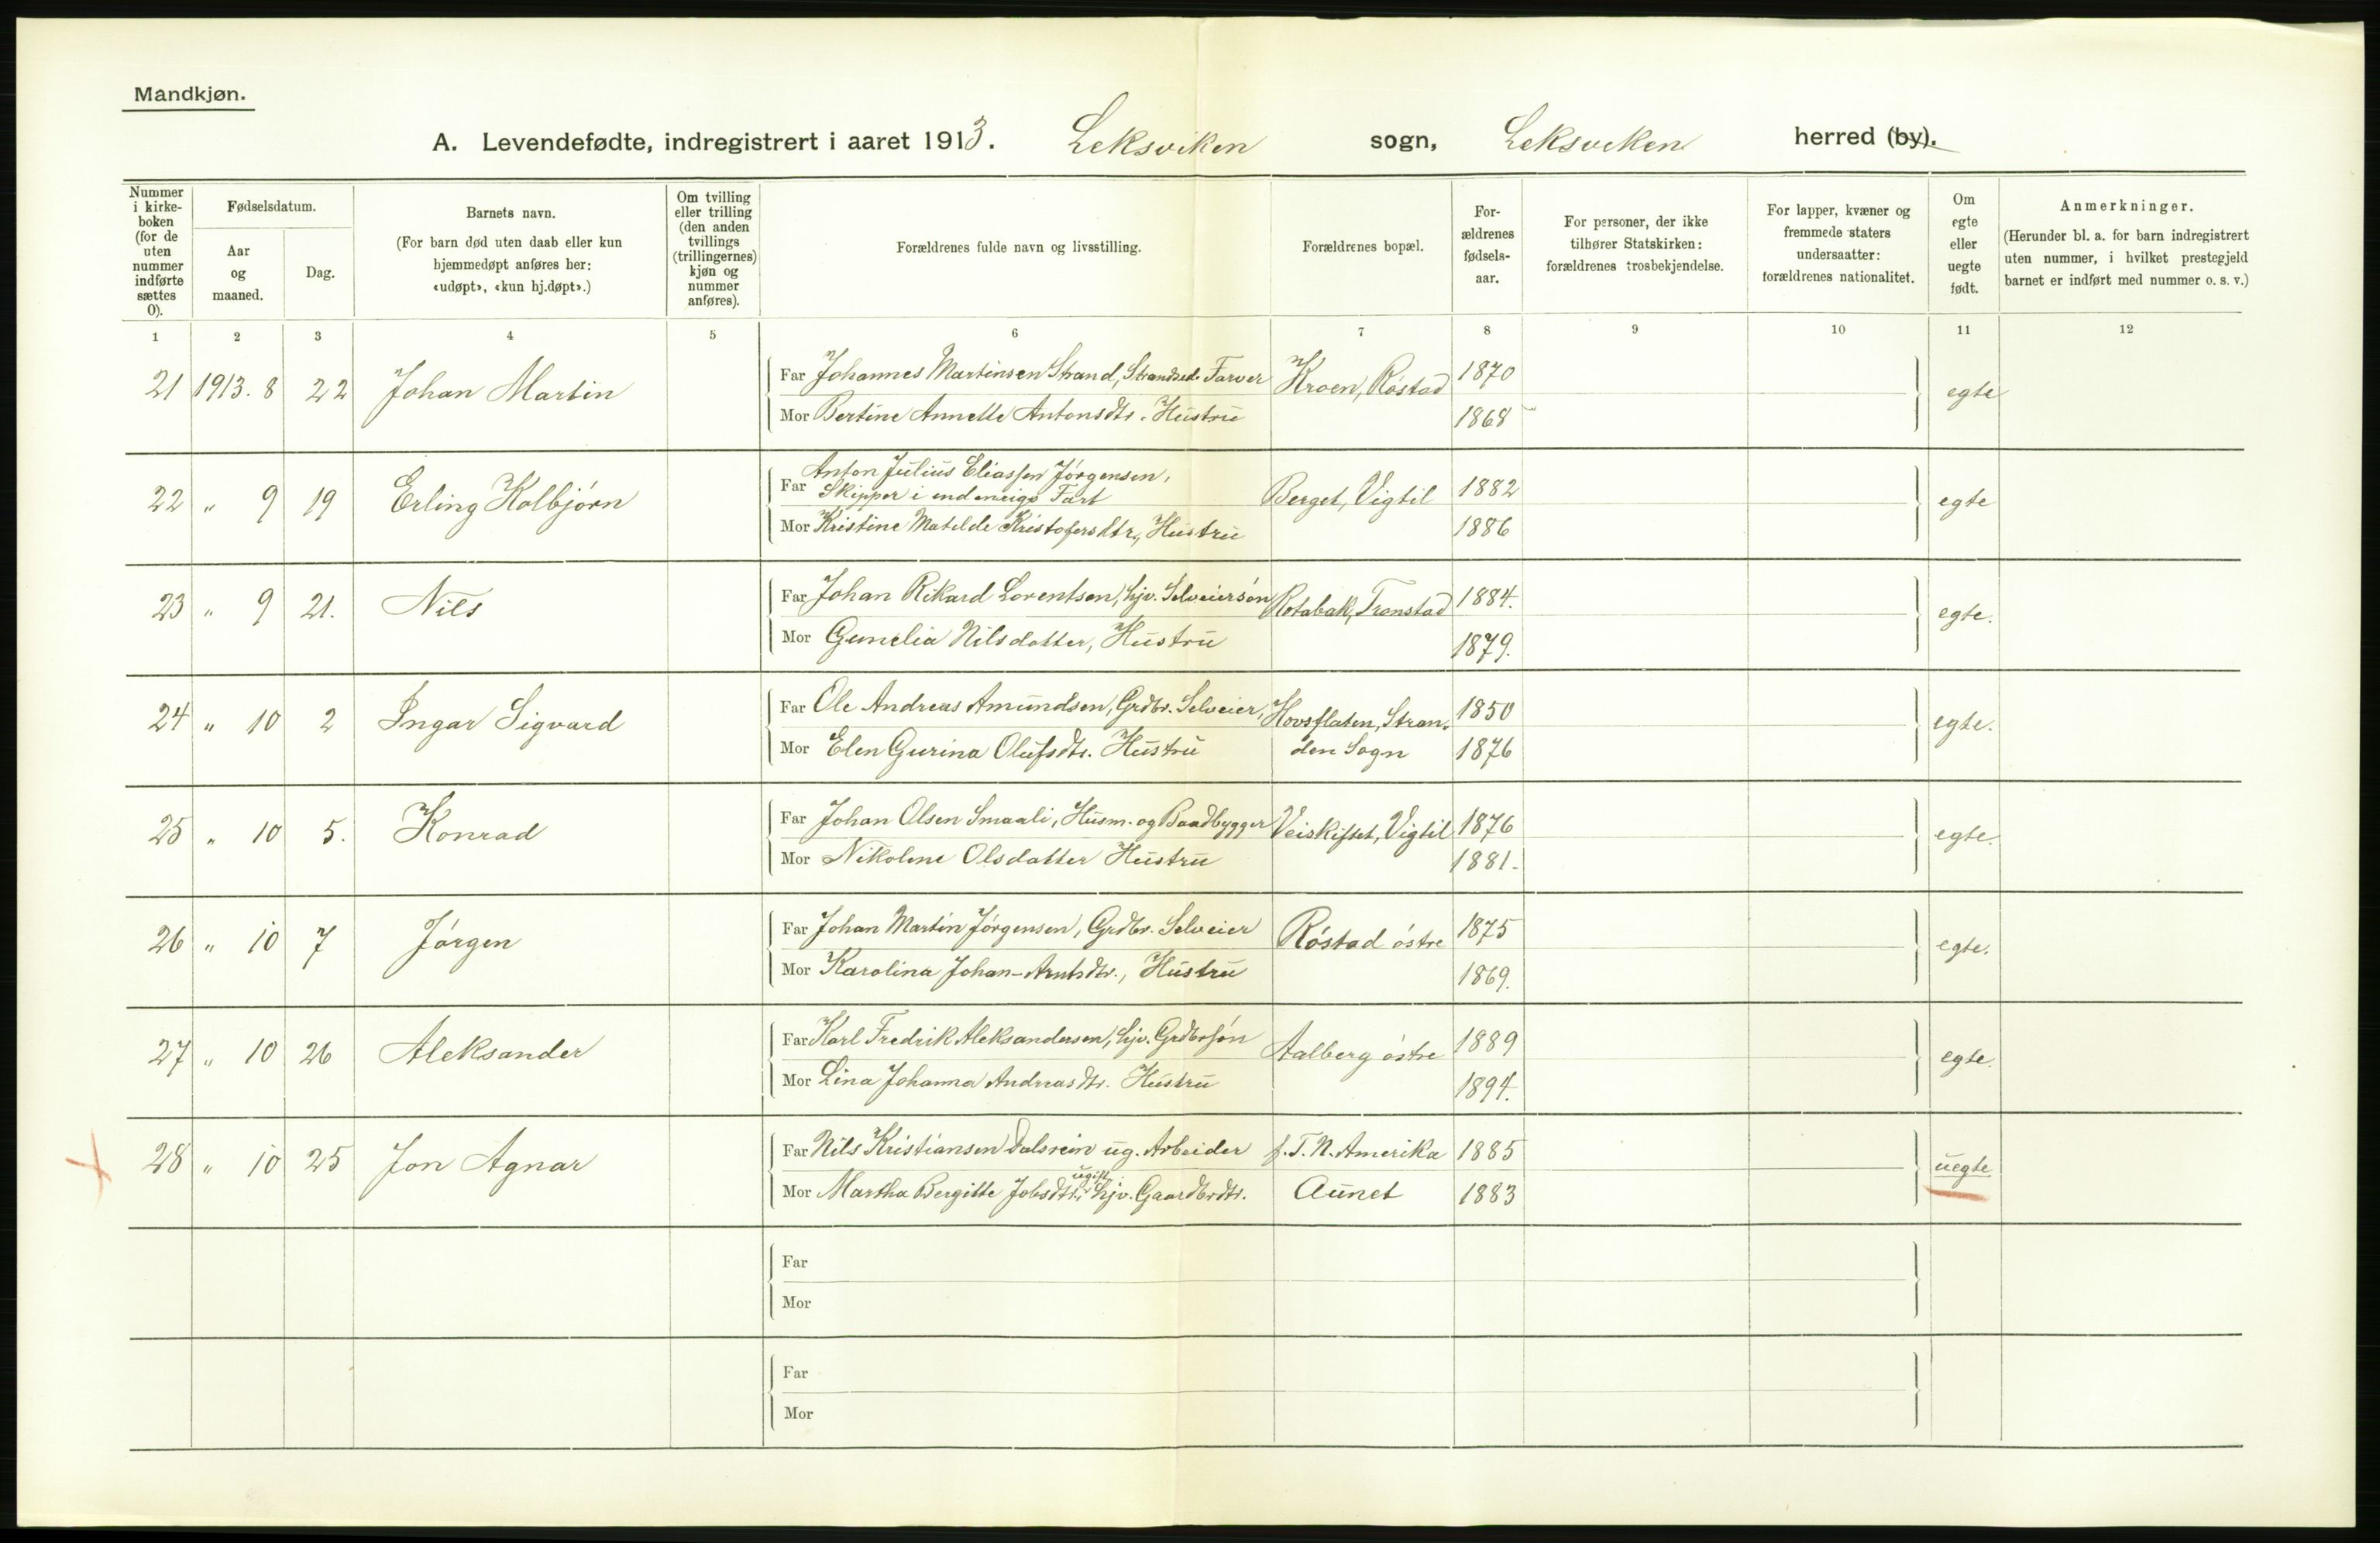 Mandkjøn.
A. Levendefødte, indregistrert i aaret 1913. Leksviken sogn, Leksviken herred (by).
Nummer i kirke-boken (for de uten nummer indførte sættes 0).
Fødselsdatum.
Aar og maaned.
Dag.
Barnets navn.
(For barn død uten daab eller kun hjemmedøpt anføres her: «udøpt», «kun hj.døpt».)
Om tvilling eller trilling (den anden tvillings (trillingernes) kjøn og nummer anføres).
Forældrenes fulde navn og livsstilling.
Forældrenes bopæl.
For-ældrenes fødsels-aar.
For personer, der ikke tilhører Statskirken: forældrenes trosbekjendelse.
For lapper, kvæner og fremmede staters undersaatter: forældrenes nationalitet.
Om egte eller uegte født.
Anmerkninger.
(Herunder bl. a. for barn indregistrert uten nummer, i hvilket prestegjeld barnet er indført med nummer o. s. v.)
1 2 3 4 5 6 7 8 9 10 11 12
21 1913. 8 22 Johan Martin Far Johannes Martinsen Strand, Strandsed. Farver Kroen, Røstad 1870 egte
Mor Bertine Annette Antonsdtr. Hustru 1868
22 " 9 19 Erling Kolbjørn Far Anton Julius Eliassen Jørgensen,
Skipper i indenrigs Fart Berget, Vigtil 1882 egte
Mor Kristine Matilde Kristofersdtr., Hustru 1886
23 " 9 21. Nils Far Johan Rikard Lorentsen, hjv. Selveiersøn Rotabak, Transtad 1884. egte.
Mor Gunelia Nilsdatter, Hustru 1879.
24 " 10 2 Ingar Sigvard Far Ole Andreas Amundsen, Grdbr. Selveier, Hovsflaten, Stran- 1850 egte.
Mor Elen Gurina Olufsdtr. Hustru den Sogn 1876
25 " 10 5. Konrad Far Johan Olsen Smaali, Husm. og Baadbygger Veiskiftet, Vigtil 1876 egte.
Mor Nikoline Olsdatter Hustru 1881.
26 " 10 7 Jørgen Far Johan Martin Jørgensen, Grdbr. Selveier Røstad østre 1875 egte.
Mor Karolina Johan-Arntsdtr., Hustru 1869.
27 " 10 26 Aleksander Far Karl Fredrik Aleksandersen, hjv. Grdbrsøn Aalberg østre 1889 egte.
Mor Lina Johanna Andreasdtr. Hustru 1894.
28 " 10 25 Jon Agnar Far Nils Kristiansen Dalsrein ug. Arbeider f. T. N. Amerika 1885 uegte
Mor Martha Bergitte Jobsdtr., ugift hjv. Gaardbrdtr. Aunet 1883
Far
Mor
Far
Mor